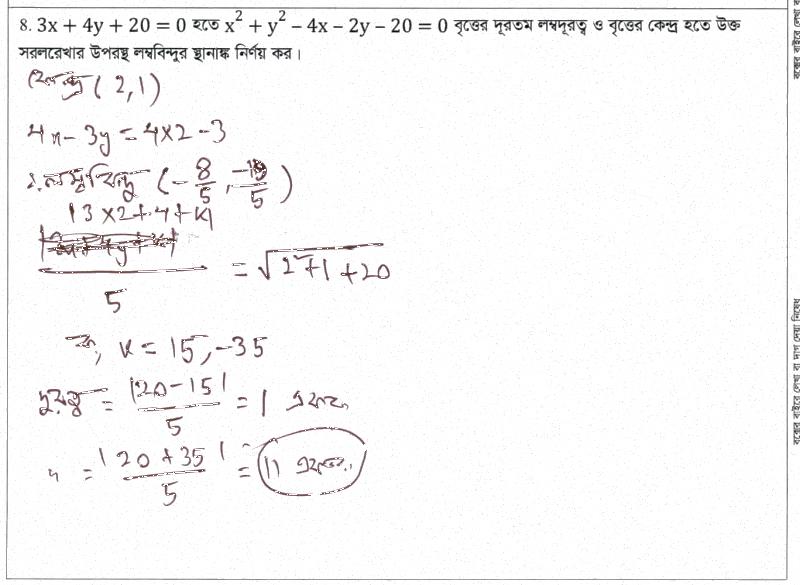 8. 3x + 4y + 20 = 0 হতে x² + y² − 4x − 2y − 20 = 0 বৃত্তের দূরতম লম্বদূরত্ব ও বৃত্তের কেন্দ্র হতে উক্ত
সরলরেখার উপরস্থ লম্ববিন্দুর স্থানাঙ্ক নির্ণয় কর।
কেন্দ্র (2,1)
4x - 3y = 4×2 - 3
∴ লম্ববিন্দু (-8/5, /5)
|3×2+4+k| / 5 = √2²+1+20
k = 15, -35
দূরত্ব = |20-15| / 5 = 1 একক
" = |20+35| / 5 = 11 একক